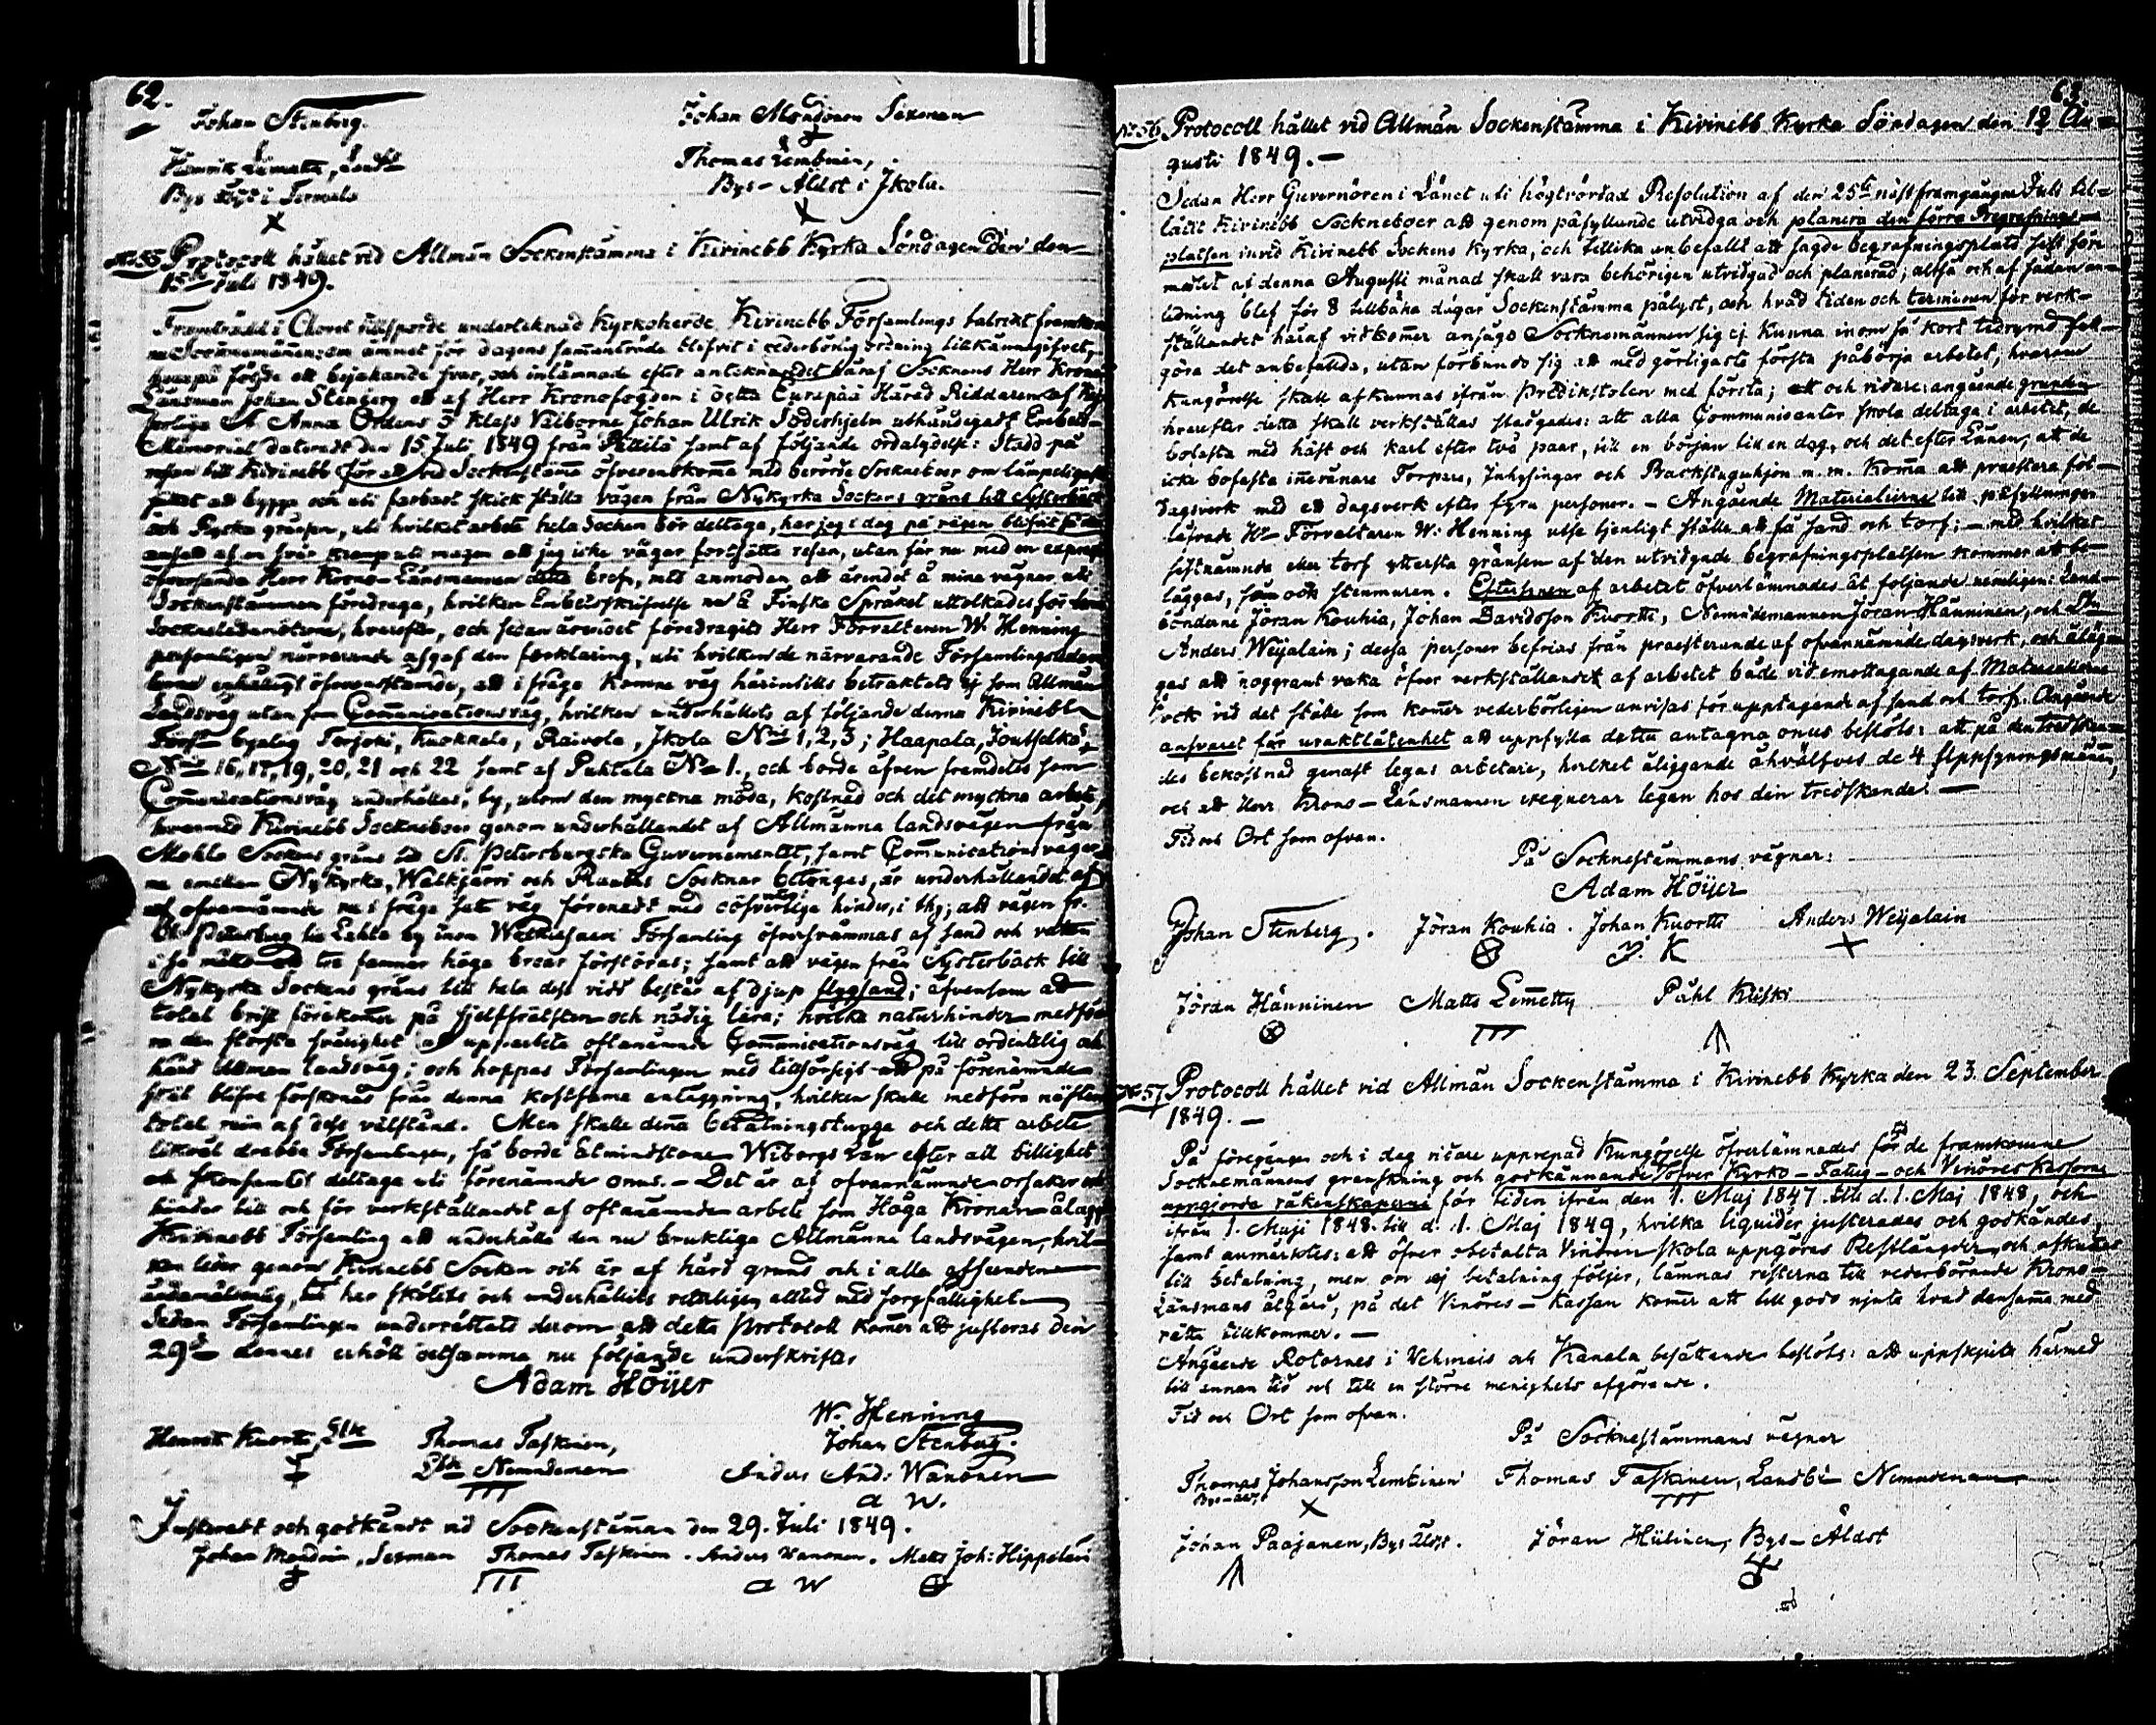 62.
Johan Stenberg.
Johan Mondoinen Sexman
Henrik Lematta, Landb.
Thomas Lembinen,
Bys Äldst i Termola
Bys-Äldst i Jkola.
No 55 Protocoll hållet vid Allmän Sockenstämma i Kivinebb Kyrka Söndagen den
15de Juli 1849.
Framträdd i Choret tillsporde undertecknad Kyrkoherde Kivinebb Församlings talrikt framkom-
ne Socknemännen: om ämnet för dagens sammanträde blifvit i vederbörlig ordning tillkännagifvet,
hvarpå följde ett bejakande svar, och inlämnade efter antecknandet häraf Socknens Herr Krono
Länsman Johan Stenberg ett af Herr Kronofogden i detta Eurepää Härad Riddaren af Kej-
serliga St Anna Ordens 3 Klass Välborne Johan Ulrik Söderhjelm uthändigadt Embets-
Memorial dateradt den 15 Juli 1849 från Pällilä samt af följande ordalydelse: Stadd på
resan till Kivinebb för att vid Sockenstämma öfverenskomma med berörde Socknebor om lämpligaste
sättet att bygga och uti farbart skick ställa vägen från Nykyrka Sockens gräns till Systerbäck
och Ryska gränsen, uti hvilket arbete hela Socken bör deltaga, har jag i dag på vägen blifvit så
ansatt af en svår kramp uti magen att jag icke vågar fortsätta resan, utan får nu med en express
öfversända Herr Krono-Länsmannen detta bref, med anmodan att ärendet å mina vägnar uti
Sockenstämman föredraga, hvilken Embetsskrifvelse på Finska Språket uttolkades för
Socknеledamöterne, hvarefter, och sedan ärendet föredragits Herr Förvaltaren W. Henning
personligen närvarande afgaf den förklaring, uti hvilken de närvarande Församlingsledamö-
terne enhälligt öfverensstämde, att i fråga komne väg härintills betraktats ej som Allmän
Landsväg utan som Communicationsväg, hvilken underhållits af följande denna Kivinebb
Förs:s byalag Terjoki, Kuokkala, Raivola, Jkola Nris 1, 2, 3; Haapala, Joutselkä,
Nris 16, 17, 19, 20, 21 och 22 samt af Puhtula No 1., och borde äfven framdeles som
Communicationsväg underhållas, ty, utom den myckna möda, kostnad och det myckna arbete,
hvarmed Kivinebb Socknеboer genom underhållandet af Allmänna landsvägen från
Mohla Sockens gräns till St. Petersburgska Guvernementet, samt Communicationsvägar-
ne emellan Nykyrka, Walkjärvi och Rautus Socknar betungas, är underhållandet af
af ofvannämnde nu i fråga satt väg förenadt med oöfvervinneliga hinder, i thy; att vägen fr.
St. Petersburg till Lahta by inom Församling öfversvämmas af sand och vatten
i så måtto att tre famnar höga broar förstöras; samt att vägen från Systerbäck till
Nykyrka Sockens gräns till hela dess vidd består af djup flygsand; äfvensom att
total brist förekommer på fjellfrälsten och nödig lera; hvilka naturhinder medföra
den största svårighet att upparbeta oftanämnde Communicationsväg till ordentelig och
hård Allmän landsväg; och hoppas Församlingen med tillförsigt att på förenämnde
skäl blifva förskonad från denna kostsamma anläggning, hvilken skulle medföra nästan
total ruin af dess välstånd. Men skulle denna betalningstunga och dette arbete
likväl drabba Församlingen, så borde åtminstone Wiborgs Län efter all billighet
och skonsamhet deltaga uti förenämnde onus. - Det är af ofvannämnde orsaker och
hinder till och för verkställandet af oftanämnde arbete som Höga Kronan ålagt
Kivinebb Församling att underhålla den nu brukliga Allmänna landsvägen, hvil-
ken löper genom Kivinebb Socken och är af hård grund och i alla afseenden
ändamålsenlig, och har skötts och underhållits veterligen alltid med sorgfällighet.
Sedan Församlingen underrättats derom att detta Protocoll kommer att justeras den
29de dennes erhöll detsamma nu följande underskrifter
Adam Höijer
W. Henning
Henrik Kuortti,
Thomas Taskinen,
Johan Stenberg.
Nemndeman
Anders And: Wanonen
A W.
Justeradt och godkändt vid Sockenstämman den 29. Juli 1849.
Johan Mondoin, Sexman Thomas Taskinen. Anders Wanonen. Matts Joh: Hippeläin
A W
63
No 56 Protocoll hållet vid Allmän Sockenstämma i Kivinebb Kyrka Söndagen den 12 Au-
gusti 1849. -
Sedan Herr Guvernören i Länet uti högtvördad Resolution af den 25te nästframgångne Juli till-
låtit Kivinebb Sockneboer att genom påfyllande utvidga och planera den förra Begrafnings-
platsen invid Kivinebb Sockens Kyrka, och tillika anbefallt att sagde begrafningsplats sist före
medlet af denna Augusti månad skall vara behörigen utvidgad och planerad; altså och af sådan an-
ledning blef för 8 tillbaka dagar Sockenstämma pålyst, och hvad tiden och terminen för verk-
ställandet häraf vidkommer ansågo Socknemännen sig ej kunna inom så kort tidrymd full-
göra det anbefallda, utan förbundo sig att med görligaste första påbörja arbetet, hvarom
kungörelse skall afkunnas ifrån Predikstolen med första; och vidare: angående grunden
hvarefter detta skall verkställas stadgades: att alla Communicanter skola deltaga i arbetet, de
bofasta med häst och karl efter två paar, till en början till en dag, och det efter Länen, att de
icke bofasta innevånare Torpare, Inhysingar och Backstuguhjon m.m. komma att praestera fot-
dagsverk med ett dagsverk efter fyra personer. - Angående Materialierne till påfyllningen
lofvade Hr Förvaltaren W. Henning utse tjenligt ställe att få sand och torf; - med hvilket
sistnämnde eller torf yttersta gränsen af den utvidgade begrafningsplatsen kommer att be-
läggas, som och stenmuren. Eftersynen af arbetet öfverlämnades åt följande nemligen: Land-
bönderne Jöran Kouhia, Johan Davidsson Kuortti, Nemndemannen Jöran Hänninen, och
Anders Weijalain; dessa personer befrias från praesterande af ofvannämnde dagsverk, och åläg-
gas att noggrant vaka öfver verkställandet af arbetet både vid emottagande af Materialierne
ock vid det ställe som kommer vederbörligen anvisas för upptagande af sand och torf. Angående
ansvaret för uraktlåtenhet att uppfylla detta antagna onus beslöts: att på den tredskan-
des bekostnad genast legas arbetare, hvilket åliggande åhvälfves de 4 Uppsyningsmännen,
och att Herr Krono-Länsmannen exeqverar legan hos den tredskande. -
Tid och Ort som ofvan.
På Socknestämmans vägnar:
Adam Höijer
Johan Stenberg. Jöran Kouhia. Johan Kuortti Anders Weijalain
J. K
Jöran Hänninen Matts Lemetty Påhl Kliski
No 57 Protocoll hållet vid Allmän Sockenstämma i Kivinebb Kyrka den 23. September
1849. -
På föregången och i dag vidare upprepad Kungörelse öfverlämnades för de framkomne
Socknemännens granskning och godkännande öfver Kyrko-Fattig- och Vinöres Kassorne
uppgjorde räkenskaperne för tiden ifrån den 1. Maj 1847 till d. 1. Maj 1848, och
ifrån 1. Maji 1848. till d. 1. Maj 1849, hvilka liquider justerades och godkändes,
samt anmärktes: att öfver obetalta Vinören skola uppgöras Restlängder, och afkunnas
till betalning, men om ej betalning följer, lämnas resterna till vederbörande Krono-
Länsmans åtgärd, på det Vinöres-Kassan kommer att till godo njuta hvad densamma med
rätta tillkommer. -
Angående Rotornes i Vehmais och Kanala besättande beslöts: att uppskjuta härmed
till annan tid och till en större menighets afgörande.
Tid och Ort som ofvan.
På Socknestämmans vägnar
Thomas Johansson Lembinen Thomas Taskinen, Landb: Nemndeman
Bys-äldst
Johan Paajanen, Bys Äldst. Jöran Hülinen, Bys-Äldst